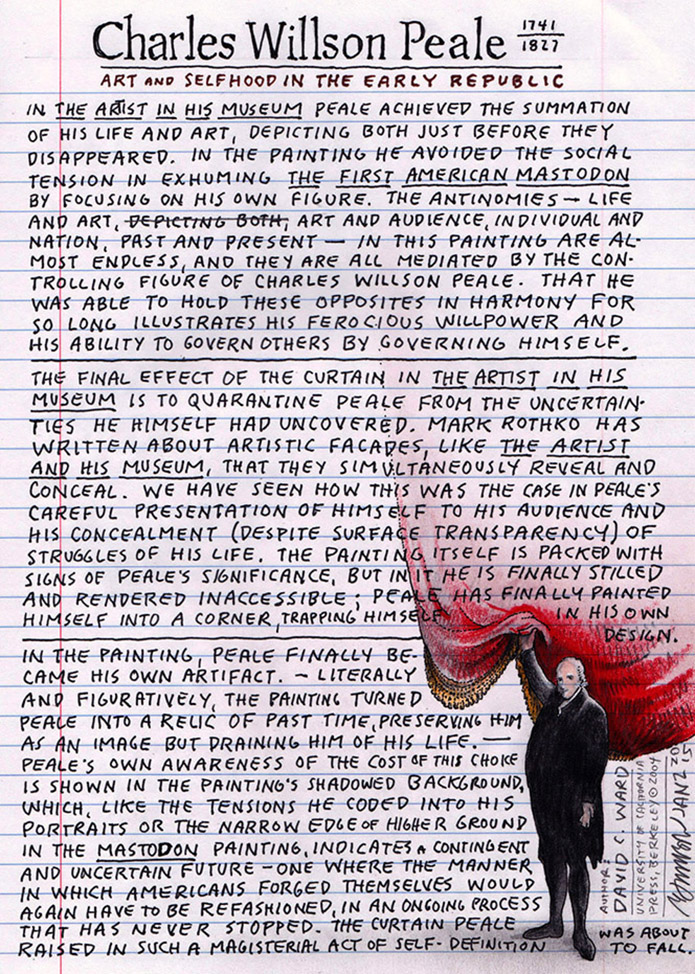 Charles Willson Peale 1741
1827
ART AND SELFHOOD IN THE EARLY REPUBLIC
IN THE ARTIST IN HIS MUSEUM PEALE ACHIEVED THE SUMMATION
OF HIS LIFE AND ART, DEPICTING BOTH JUST BEFORE THEY
DISAPPEARED. IN THE PAINTING HE AVOIDED THE SOCIAL
TENSION IN EXHUMING THE FIRST AMERICAN MASTODON
BY FOCUSING ON HIS OWN FIGURE. THE ANTINOMIES — LIFE
AND ART, DEPICTING BOTH, ART AND AUDIENCE, INDIVIDUAL AND
NATION, PAST AND PRESENT — IN THIS PAINTING ARE AL-
MOST ENDLESS, AND THEY ARE ALL MEDIATED BY THE CON-
TROLLING FIGURE OF CHARLES WILLSON PEALE. THAT HE
WAS ABLE TO HOLD THESE OPPOSITES IN HARMONY FOR
SO LONG ILLUSTRATES HIS FEROCIOUS WILLPOWER AND
HIS ABILITY TO GOVERN OTHERS BY GOVERNING HIMSELF.
THE FINAL EFFECT OF THE CURTAIN IN THE ARTIST IN HIS
MUSEUM IS TO QUARANTINE PEALE FROM THE UNCERTAIN-
TIES HE HIMSELF HAD UNCOVERED. MARK ROTHKO HAS
WRITTEN ABOUT ARTISTIC FACADES, LIKE THE ARTIST
AND HIS MUSEUM, THAT THEY SIMULTANEOUSLY REVEAL AND
CONCEAL. WE HAVE SEEN HOW THIS WAS THE CASE IN PEALE'S
CAREFUL PRESENTATION OF HIMSELF TO HIS AUDIENCE AND
HIS CONCEALMENT (DESPITE SURFACE TRANSPARENCY) OF
STRUGGLES OF HIS LIFE. THE PAINTING ITSELF IS PACKED WITH
SIGNS OF PEALE'S SIGNIFICANCE, BUT IN IT HE IS FINALLY STILLED
AND RENDERED INACCESSIBLE; PEALE HAS FINALLY PAINTED
HIMSELF INTO A CORNER, TRAPPING HIMSELF IN HIS OWN
DESIGN.
IN THE PAINTING, PEALE FINALLY BE-
CAME HIS OWN ARTIFACT. — LITERALLY
AND FIGURATIVELY, THE PAINTING TURNED
PEALE INTO A RELIC OF PAST TIME, PRESERVING HIM
AS AN IMAGE BUT DRAINING HIM OF HIS LIFE. —
PEALE'S OWN AWARENESS OF THE COST OF THIS CHOICE
IS SHOWN IN THE PAINTING'S SHADOWED BACKGROUND,
WHICH, LIKE THE TENSIONS HE CODED INTO HIS
PORTRAITS OR THE NARROW EDGE OF HIGHER GROUND
IN THE MASTODON PAINTING, INDICATES A CONTINGENT
AND UNCERTAIN FUTURE — ONE WHERE THE MANNER
IN WHICH AMERICANS FORGED THEMSELVES WOULD
AGAIN HAVE TO BE REFASHIONED, IN AN ONGOING PROCESS
THAT HAS NEVER STOPPED. THE CURTAIN PEALE
RAISED IN SUCH A MAGISTERIAL ACT OF SELF-DEFINITION
WAS ABOUT
TO FALL.
AUTHOR:
DAVID C. WARD
UNIVERSITY OF CALIFORNIA
PRESS, BERKELEY © 2004